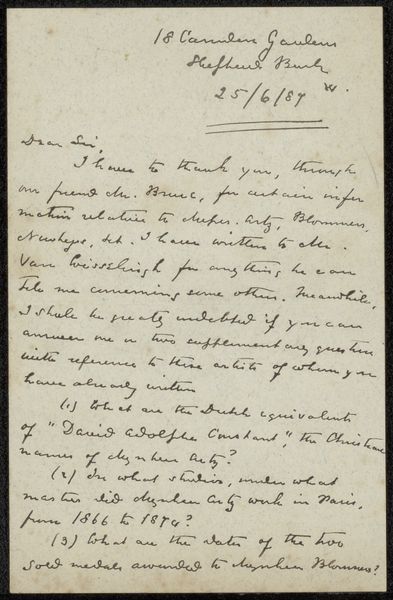 18 Camden Gardens
Shepherds Bush
W.
25/6/89
Dear Sir,
I have to thank you, through
our friend Mr. Bruce, for certain infor
mation relative to Messrs. Artz, Blommers,
Neuhuys, &ct. I have written to Mr.
Van Wisselingh for anything he can
tell me concerning some others. Meanwhile,
I shall be greatly indebted if you can
answer one or two supplementary questions
with reference to those artists of whom you
have already written
(1) What are the Dutch equivalents
of "David Adolphe Constant", the Christian
names of Mynheer Artz?
(2) In what studios, under what
masters did Mynheer Artz work in Paris,
from 1866 to 1874?
(3) What are the dates of the two
gold medals awarded to Mynheer Blommers?